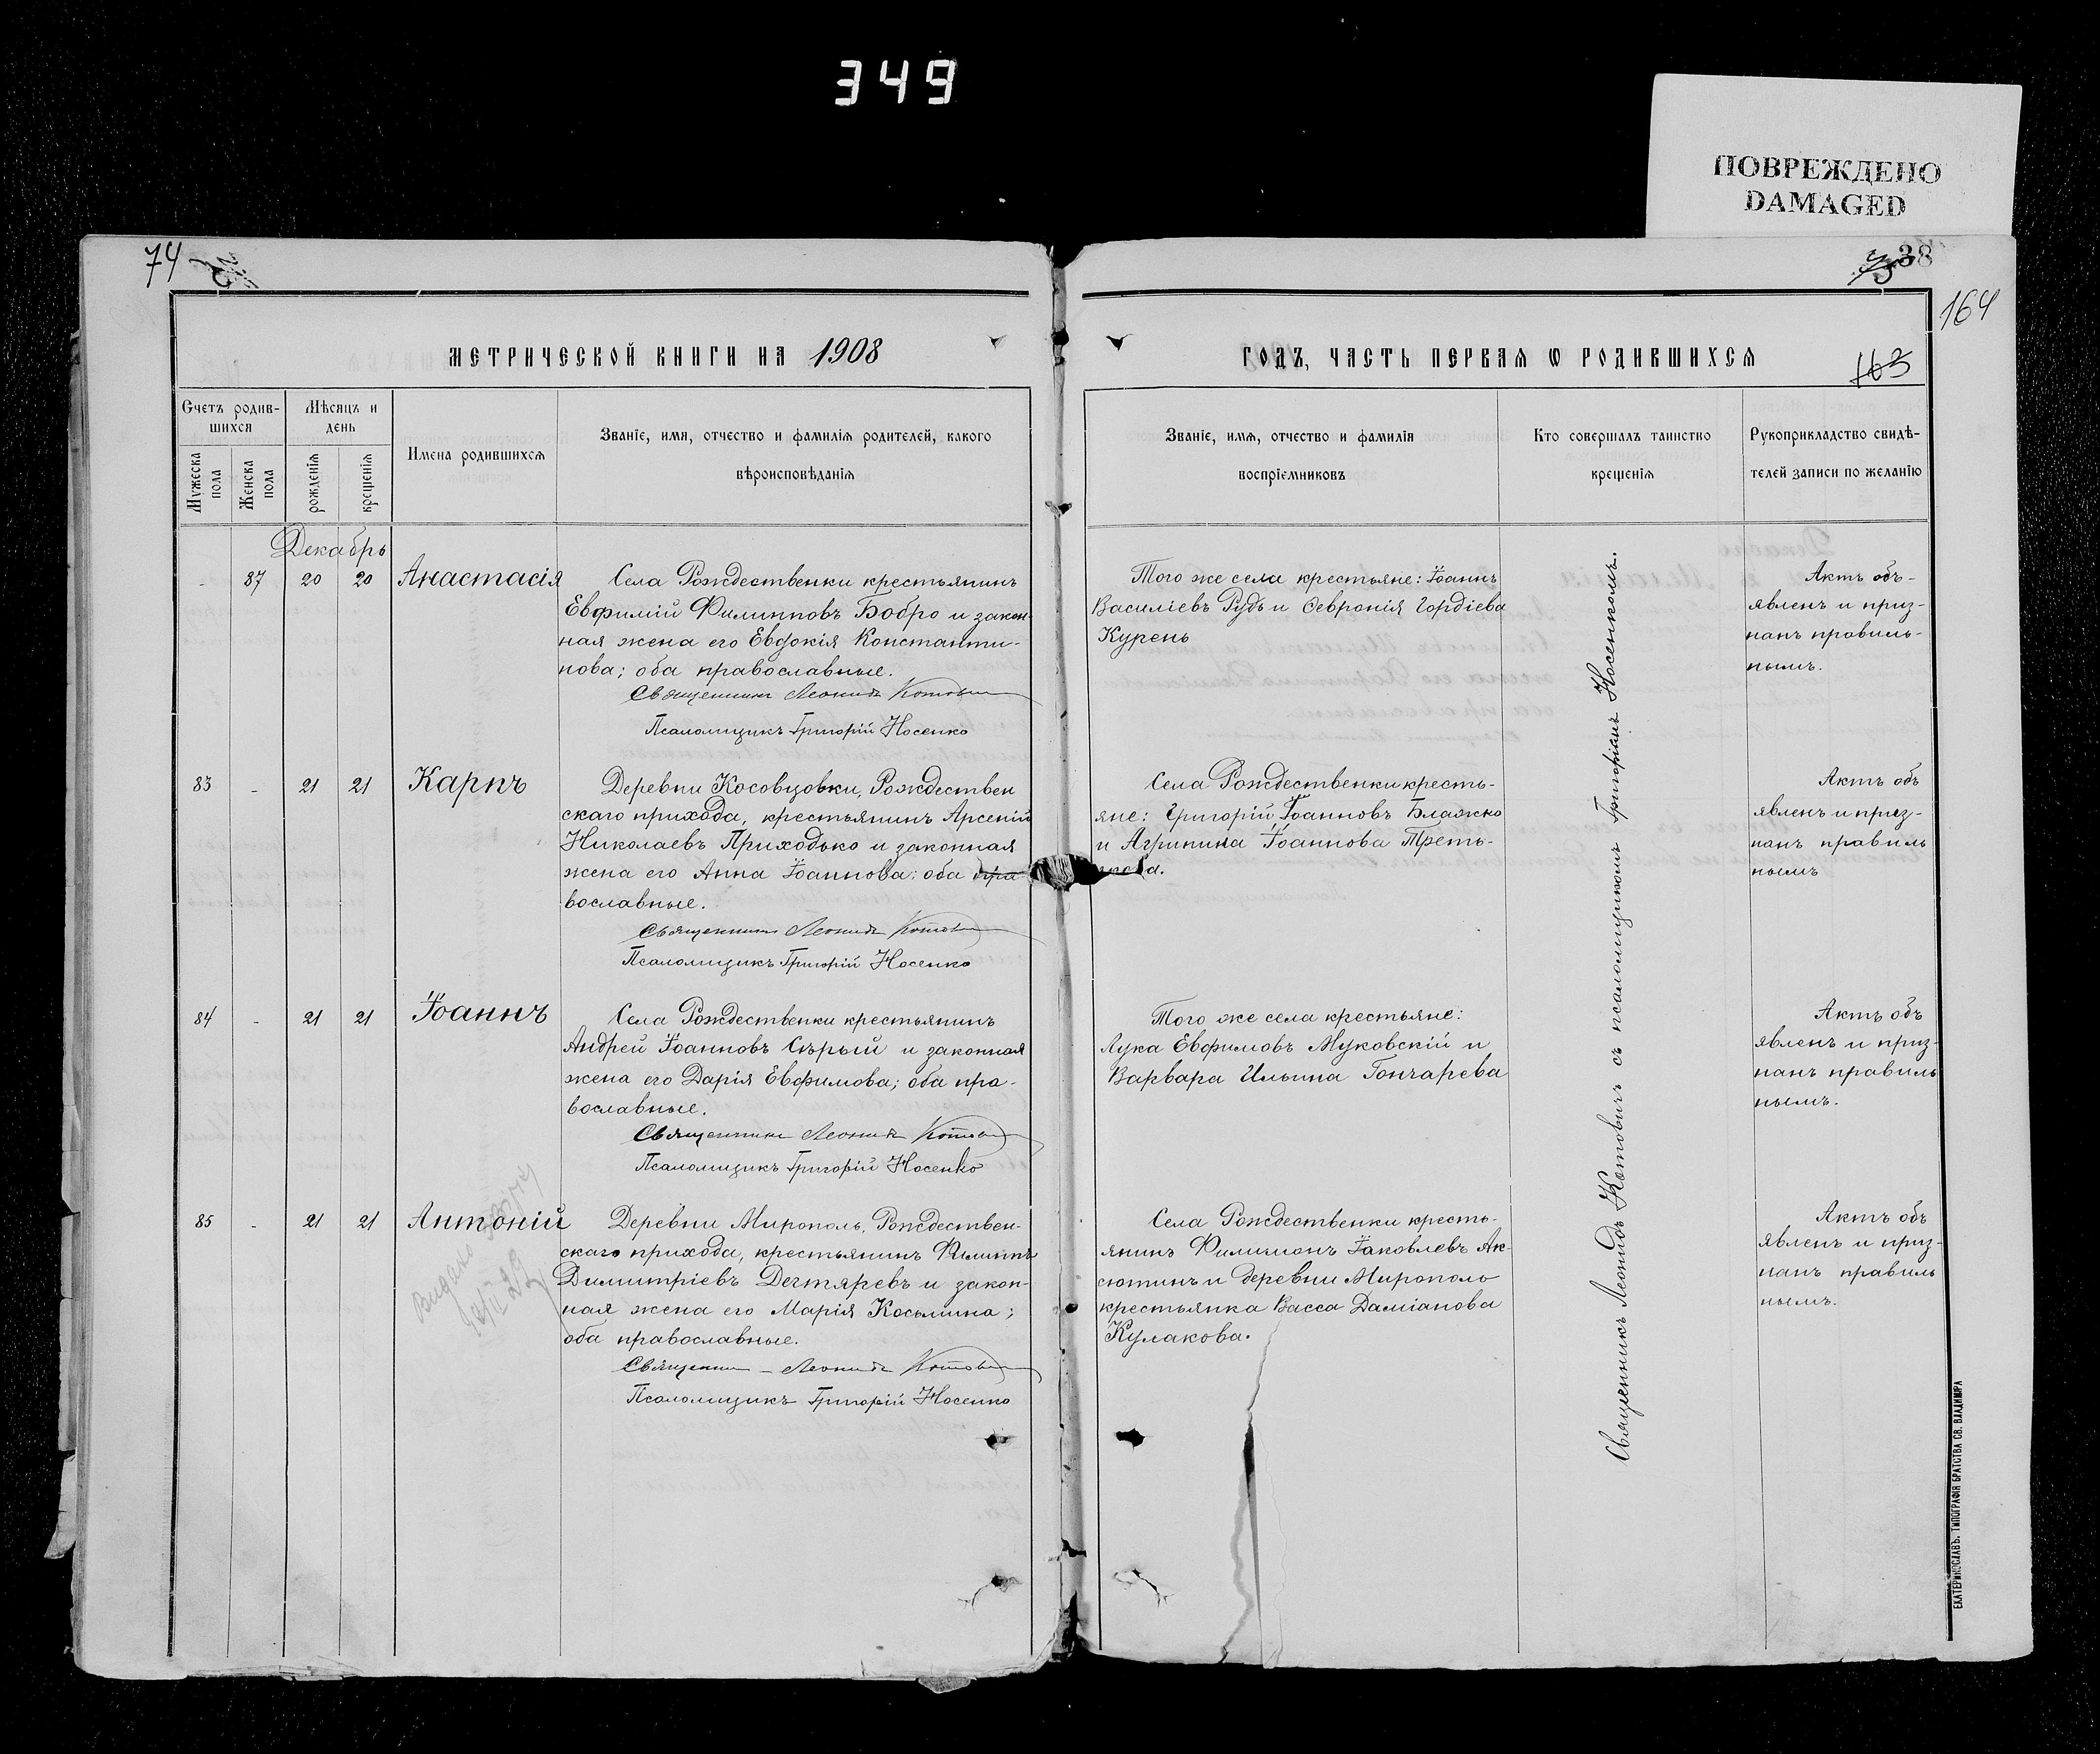 349
ПОВРЕЖДЕНО
DAMAGED
74
38
164
МЕТРИЧЕСКОЙ КНИГИ НА 1908
ГОДЪ, ЧАСТЬ ПЕРВАЯ Ѡ РОДИВШИХСЯ
163
Счетъ родив-
шихся
Мужеска пола
Женска пола
Мѣсяцъ и
день
рожденія
крещенія
Имена родившихся
Званіе, имя, отчество и фамилія родителей, какого
вѣроисповѣданія
Званіе, имя, отчество и фамилія
воспріемниковъ
Кто совершалъ таинство
крещенія
Рукоприкладство свидѣ-
телей записи по желанію
Декабрь
- 87 20 20 Анастасія
Села Рождественки крестьянинъ
Евфимій Филипповъ Бобро и закон-
ная жена его Евдокія Константи-
нова; оба православные.
Священникъ Леонидъ Котович
Псаломщикъ Григорій Носенко
Того же села крестьяне: Іоаннъ
Василіевъ Рудь и Февронія Гордіева
Курень
Актъ объ-
явленъ и приз-
нанъ правиль-
нымъ.
83 - 21 21 Карпъ
Деревни Косовцовки, Рождествен
скаго прихода, крестьянинъ Арсеній
Николаевъ Приходько и законная
жена его Анна Іоаннова; оба пра
вославные.
Священникъ Леонидъ Котович
Псаломщикъ Григорій Носенко
Села Рождественки кресть-
яне: Григорій Іоанновъ Блажко
и Агрипина Іоаннова Треть-
якова.
Актъ объ
явленъ и приз-
нанъ правиль
нымъ
84 - 21 21 Іоаннъ
Села Рождественки крестьянинъ
Андрей Іоанновъ Сѣрый и законная
жена его Дарія Евфимова; оба пра-
вославные.
Священникъ Леонидъ Котович
Псаломщикъ Григорій Носенко
Того же села крестьяне:
Лука Евфимовъ Муковскій и
Варвара Ильина Гончарева
Актъ объ
явленъ и приз-
нанъ правиль
нымъ.
85 - 21 21 Антоній
Видано
Деревни Мирополь, Рождествен-
скаго прихода, крестьянинъ Филиппъ
Димитріевъ Дегтяревъ и закон-
ная жена его Марія Косьмина;
оба православные.
Священник Леонидъ Котович
Псаломщикъ Григорій Носенко
Села Рождественки кресть-
янинъ Филимонъ Іаковлевъ Ак-
сютинъ и деревни Мирополь
крестьянка Васса Даміанова
Кулакова.
Актъ объ
явленъ и приз-
нанъ правиль
нымъ.
Священникъ Леонидъ Котовичъ съ псаломщикомъ Григоріемъ Носенкомъ.
ЕКАТЕРИНОСЛАВЪ. ТИПОГРАФІЯ БРАТСТВА СВ. ВЛАДИМІРА